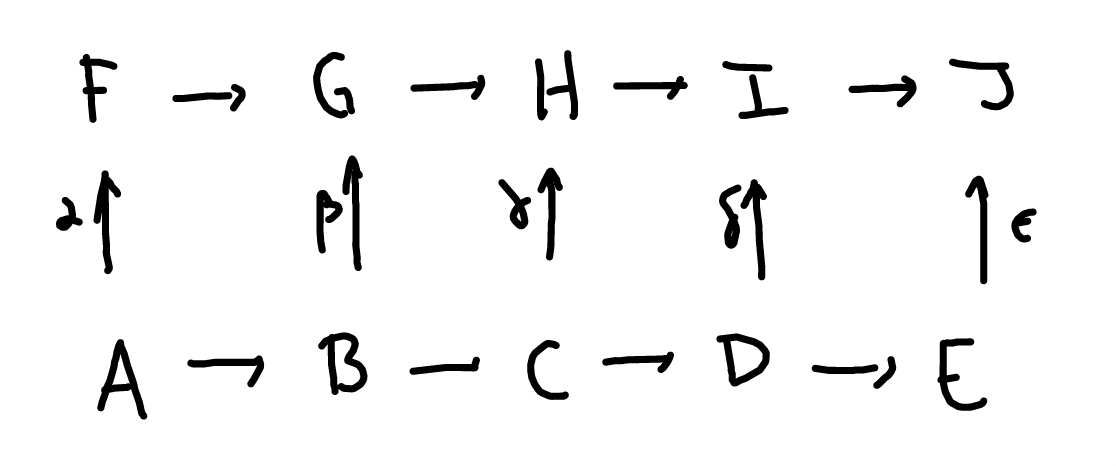 F → G → H → I → J
α ↑ β ↑ γ ↑ δ ↑ ↑ ε
A → B — C → D → E